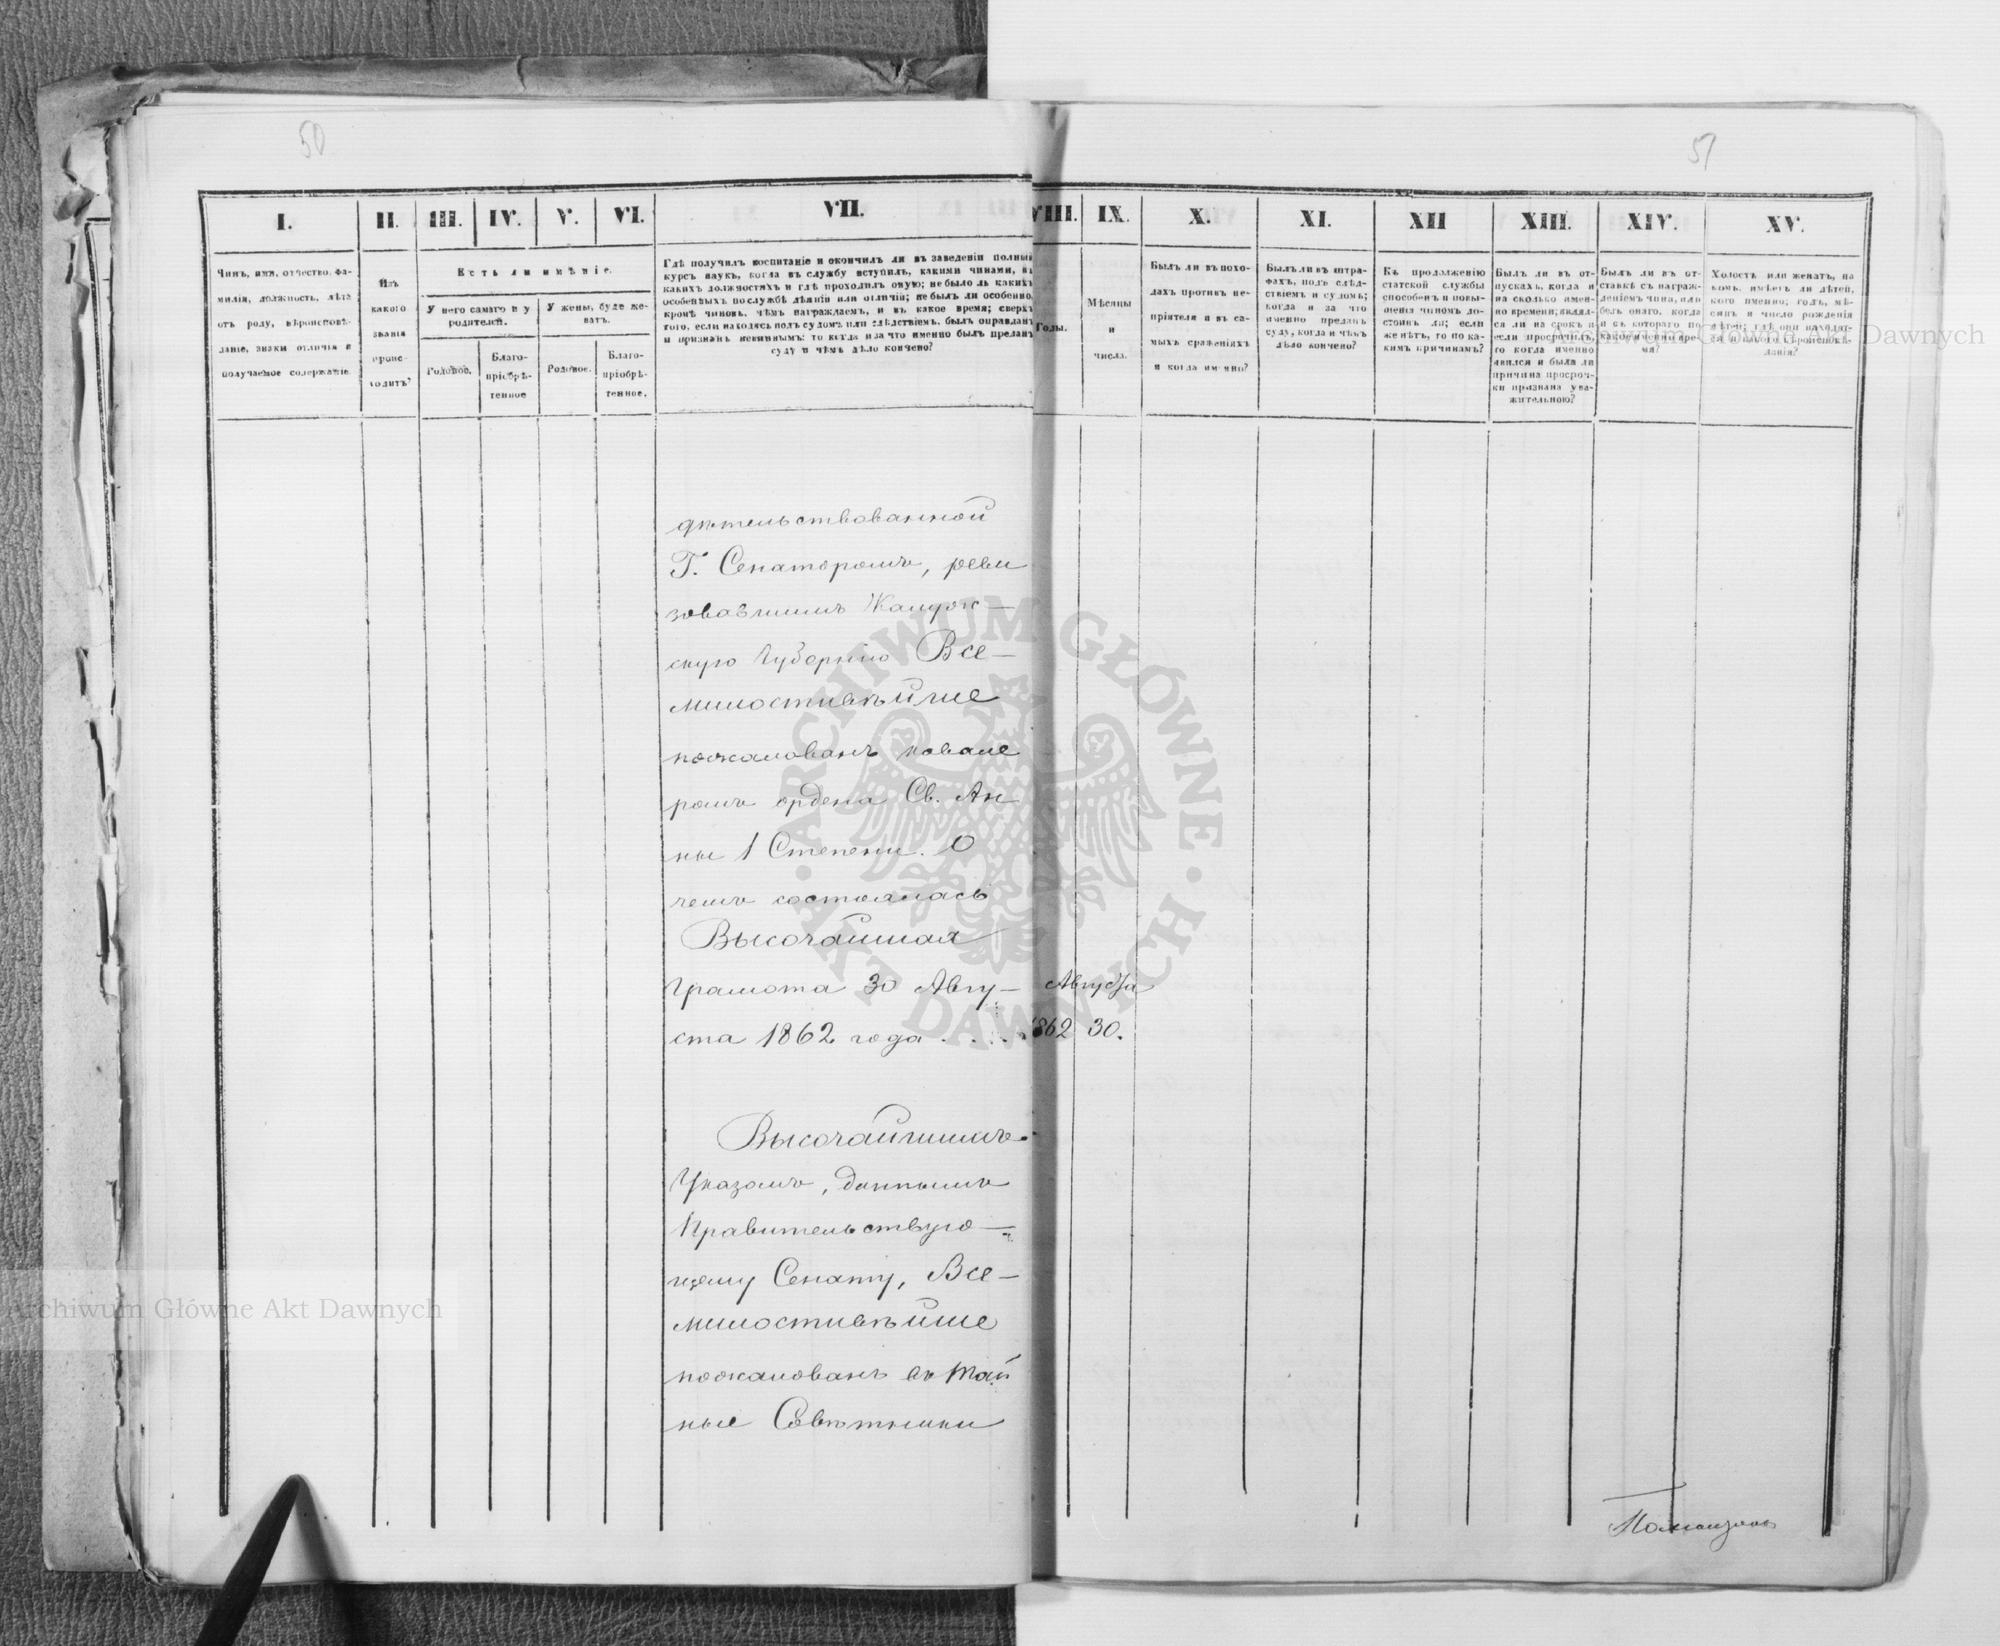 50
51
I.
II.
III.
IV.
V.
VI.
VII.
VIII.
IX.
X.
XI.
XII
XIII.
XIV.
XV.
Чинъ, имя, отчество, фа-
милія, должность, лѣта
отъ роду, вѣроисповѣ-
даніе, знаки отличія и
получаемое содержаніе.
Изъ
какого
званія
проис-
ходитъ?
Есть ли имѣніе.
У него самаго и у
родителей.
У жены, буде же-
натъ.
Родовое.
Благо-
пріобрѣ-
тенное
Родовое.
Благо-
пріобрѣ-
тенное.
Гдѣ получилъ воспитаніе и окончилъ ли въ заведеніи полный
курсъ наукъ, когда въ службу вступилъ, какими чинами, въ
какихъ должностяхъ и гдѣ проходилъ оную; не было ль какихъ
особенныхъ по службѣ дѣяній или отличій; не былъ ли особенно,
кромѣ чиновъ, чѣмъ награждаемъ, и въ какое время; сверхъ
того, если находясь подъ судомъ или слѣдствіемъ, былъ оправданъ
и признанъ невиннымъ: то когда и за что именно былъ преданъ
суду и чѣмъ дѣло кончено?
Годы.
Мѣсяцы
и
числа.
Былъ ли въ похо-
дахъ противъ не-
пріятеля и въ са-
мыхъ сраженіяхъ
и когда именно?
Былъ ли въ штра-
фахъ, подъ слѣд-
ствіемъ и судомъ;
когда и за что
именно преданъ
суду, когда и чѣмъ
дѣло кончено?
Къ продолженію
статской службы
способенъ и повы-
шенія чиномъ до-
стоинъ ли; если
же нѣтъ, то по ка-
кимъ причинамъ?
Былъ ли въ от-
пускахъ, когда и
на сколько имен-
но времени; являл-
ся ли на срокъ и
если просрочилъ,
то когда именно
явился и была ли
причина просроч-
ки признана ува-
жительною?
Былъ ли въ от-
ставкѣ съ награж-
деніемъ чина, или
безъ онаго, когда
и съ котораго по
какое именно вре-
мя?
Холостъ или женатъ, на
комъ, имѣетъ ли дѣтей,
кого именно; годъ, мѣ-
сяцъ и число рожденія
дѣтей; гдѣ они находят-
ся и какого вѣроисповѣ-
данія?
дѣтельствованной
Г. Сенаторомъ, реви
зовавшимъ Калуж-
скую Губернію Все-
милостивѣйше
пожалованъ кавале
ромъ ордена Св. Ан
ны 1 Степени. О
чемъ состоялась
Высочайшая
Грамота 30 Авгу-
ста 1862 года . . . .
Августа
1862 30.
Высочайшимъ
Указомъ, даннымъ
Правительствую-
щему Сенату, Все-
милостивѣйше
пожалованъ въ Тай
ные Совѣтники
Archiwum Główne Akt Dawnych
Archiwum Główne Akt Dawnych
ARCHIWUM GŁÓWNE · AKT DAWNYCH ·